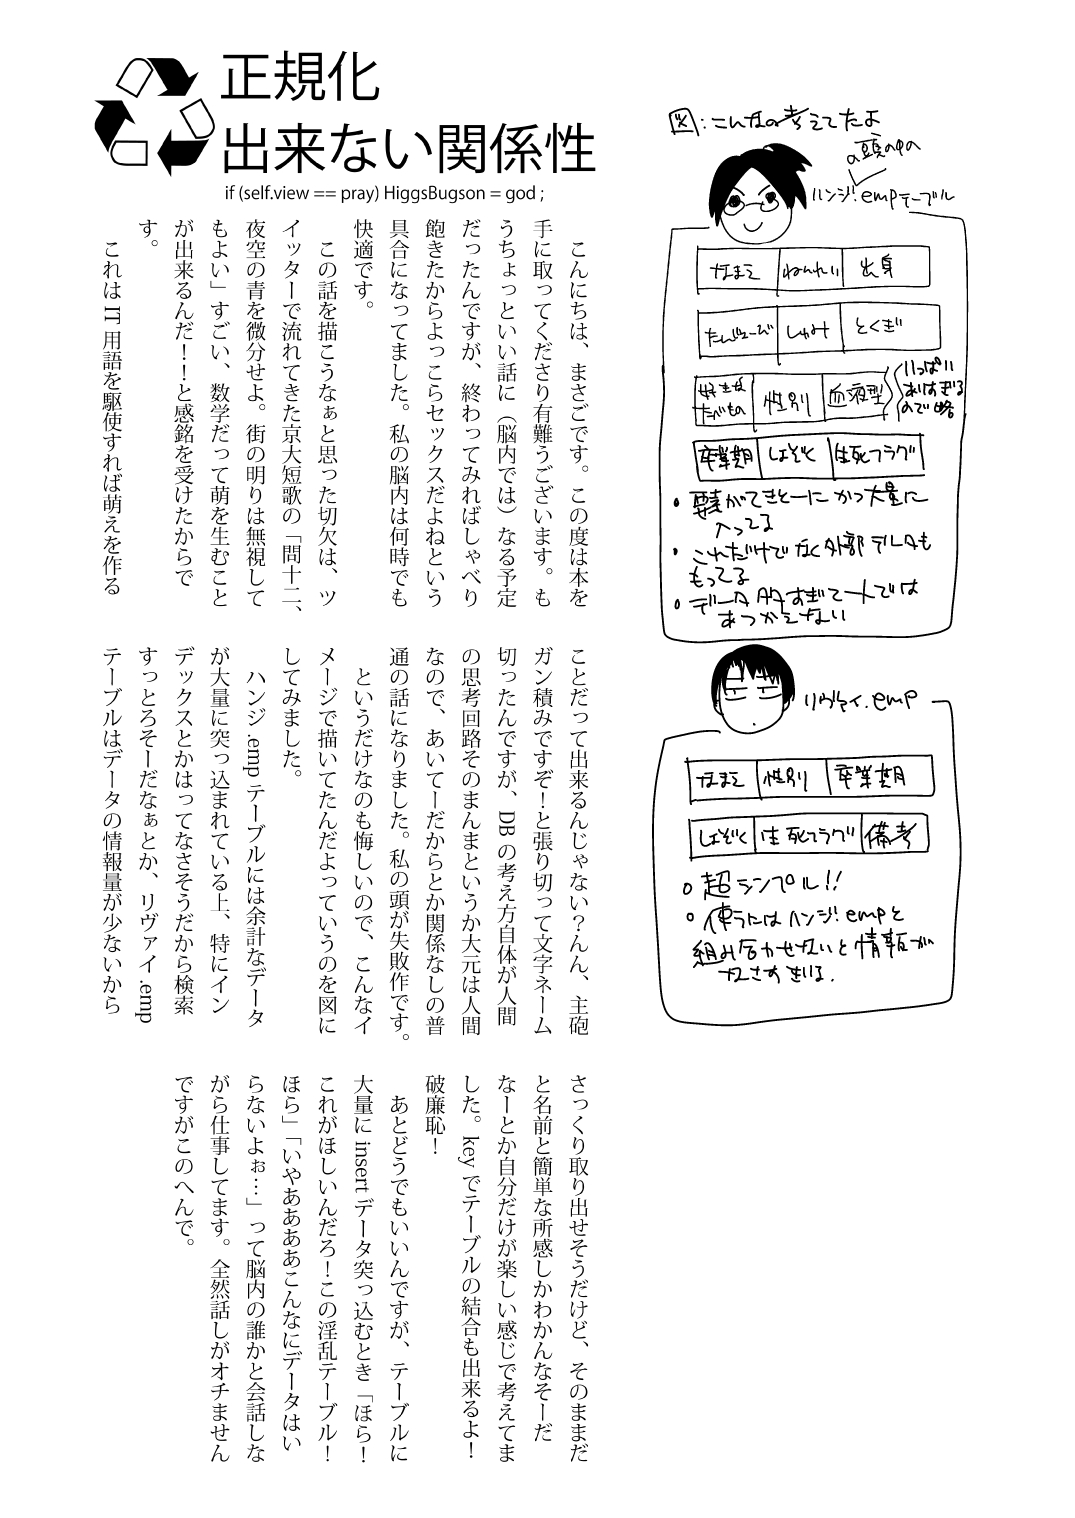 正規化
出来ない関係性
if (self.view == pray) HiggsBugson = god ;
こんにちは、まさごです。この度は本を
手に取ってくださり有難うございます。も
うちょっといい話に（脳内では）なる予定
だったんですが、終わってみればしゃべり
飽きたからよっこらセックスだよねという
具合になってました。私の脳内は何時でも
快適です。
この話を描こうなぁと思った切欠は、ツ
イッターで流れてきた京大短歌の「問十二、
夜空の青を微分せよ。街の明りは無視して
もよい」すごい、数学だって萌を生むこと
が出来るんだ！！と感銘を受けたからで
す。
これは IT 用語を駆使すれば萌えを作る
ことだって出来るんじゃない？んん、主砲
ガン積みですぞ！と張り切って文字ネーム
切ったんですが、DB の考え方自体が人間
の思考回路そのまんまというか大元は人間
なので、あいてーだからとか関係なしの普
通の話になりました。私の頭が失敗作です。
というだけなのも悔しいので、こんなイ
メージで描いてたんだよっていうのを図に
してみました。
ハンジ .emp テーブルには余計なデータ
が大量に突っ込まれている上、特にイン
デックスとかはってなさそうだから検索
すっとろそーだなぁとか、リヴァイ .emp
テーブルはデータの情報量が少ないから
さっくり取り出せそうだけど、そのままだ
と名前と簡単な所感しかわかんなそーだ
なーとか自分だけが楽しい感じで考えてま
した。key でテーブルの結合も出来るよ！
破廉恥！
あとどうでもいいんですが、テーブルに
大量に insert データ突っ込むとき「ほら！
これがほしいんだろ！この淫乱テーブル！
ほら」「いやああああこんなにデータはい
らないよぉ…」って脳内の誰かと会話しな
がら仕事してます。全然話しがオチません
ですがこのへんで。
図:こんなの考えてたよ
の頭の中の
ハンジ.empテーブル
なまえ ねんれい 出身
たんじょーび しゅみ とくぎ
好きな
たべもの 性別 血液型
いっぱい
ありすぎる
ので略
卒業期 しょぞく 生死フラグ
・要素がてきとーにかつ大量に
入ってる
・これだけでなく外部データも
もってる
・データ多すぎて一人では
あつかえない
リヴァイ.emp
なまえ 性別 卒業期
しょぞく 生死フラグ 備考
○超シンプル!!
○使うにはハンジ.empと
組み合わせないと情報が
なさすぎる.